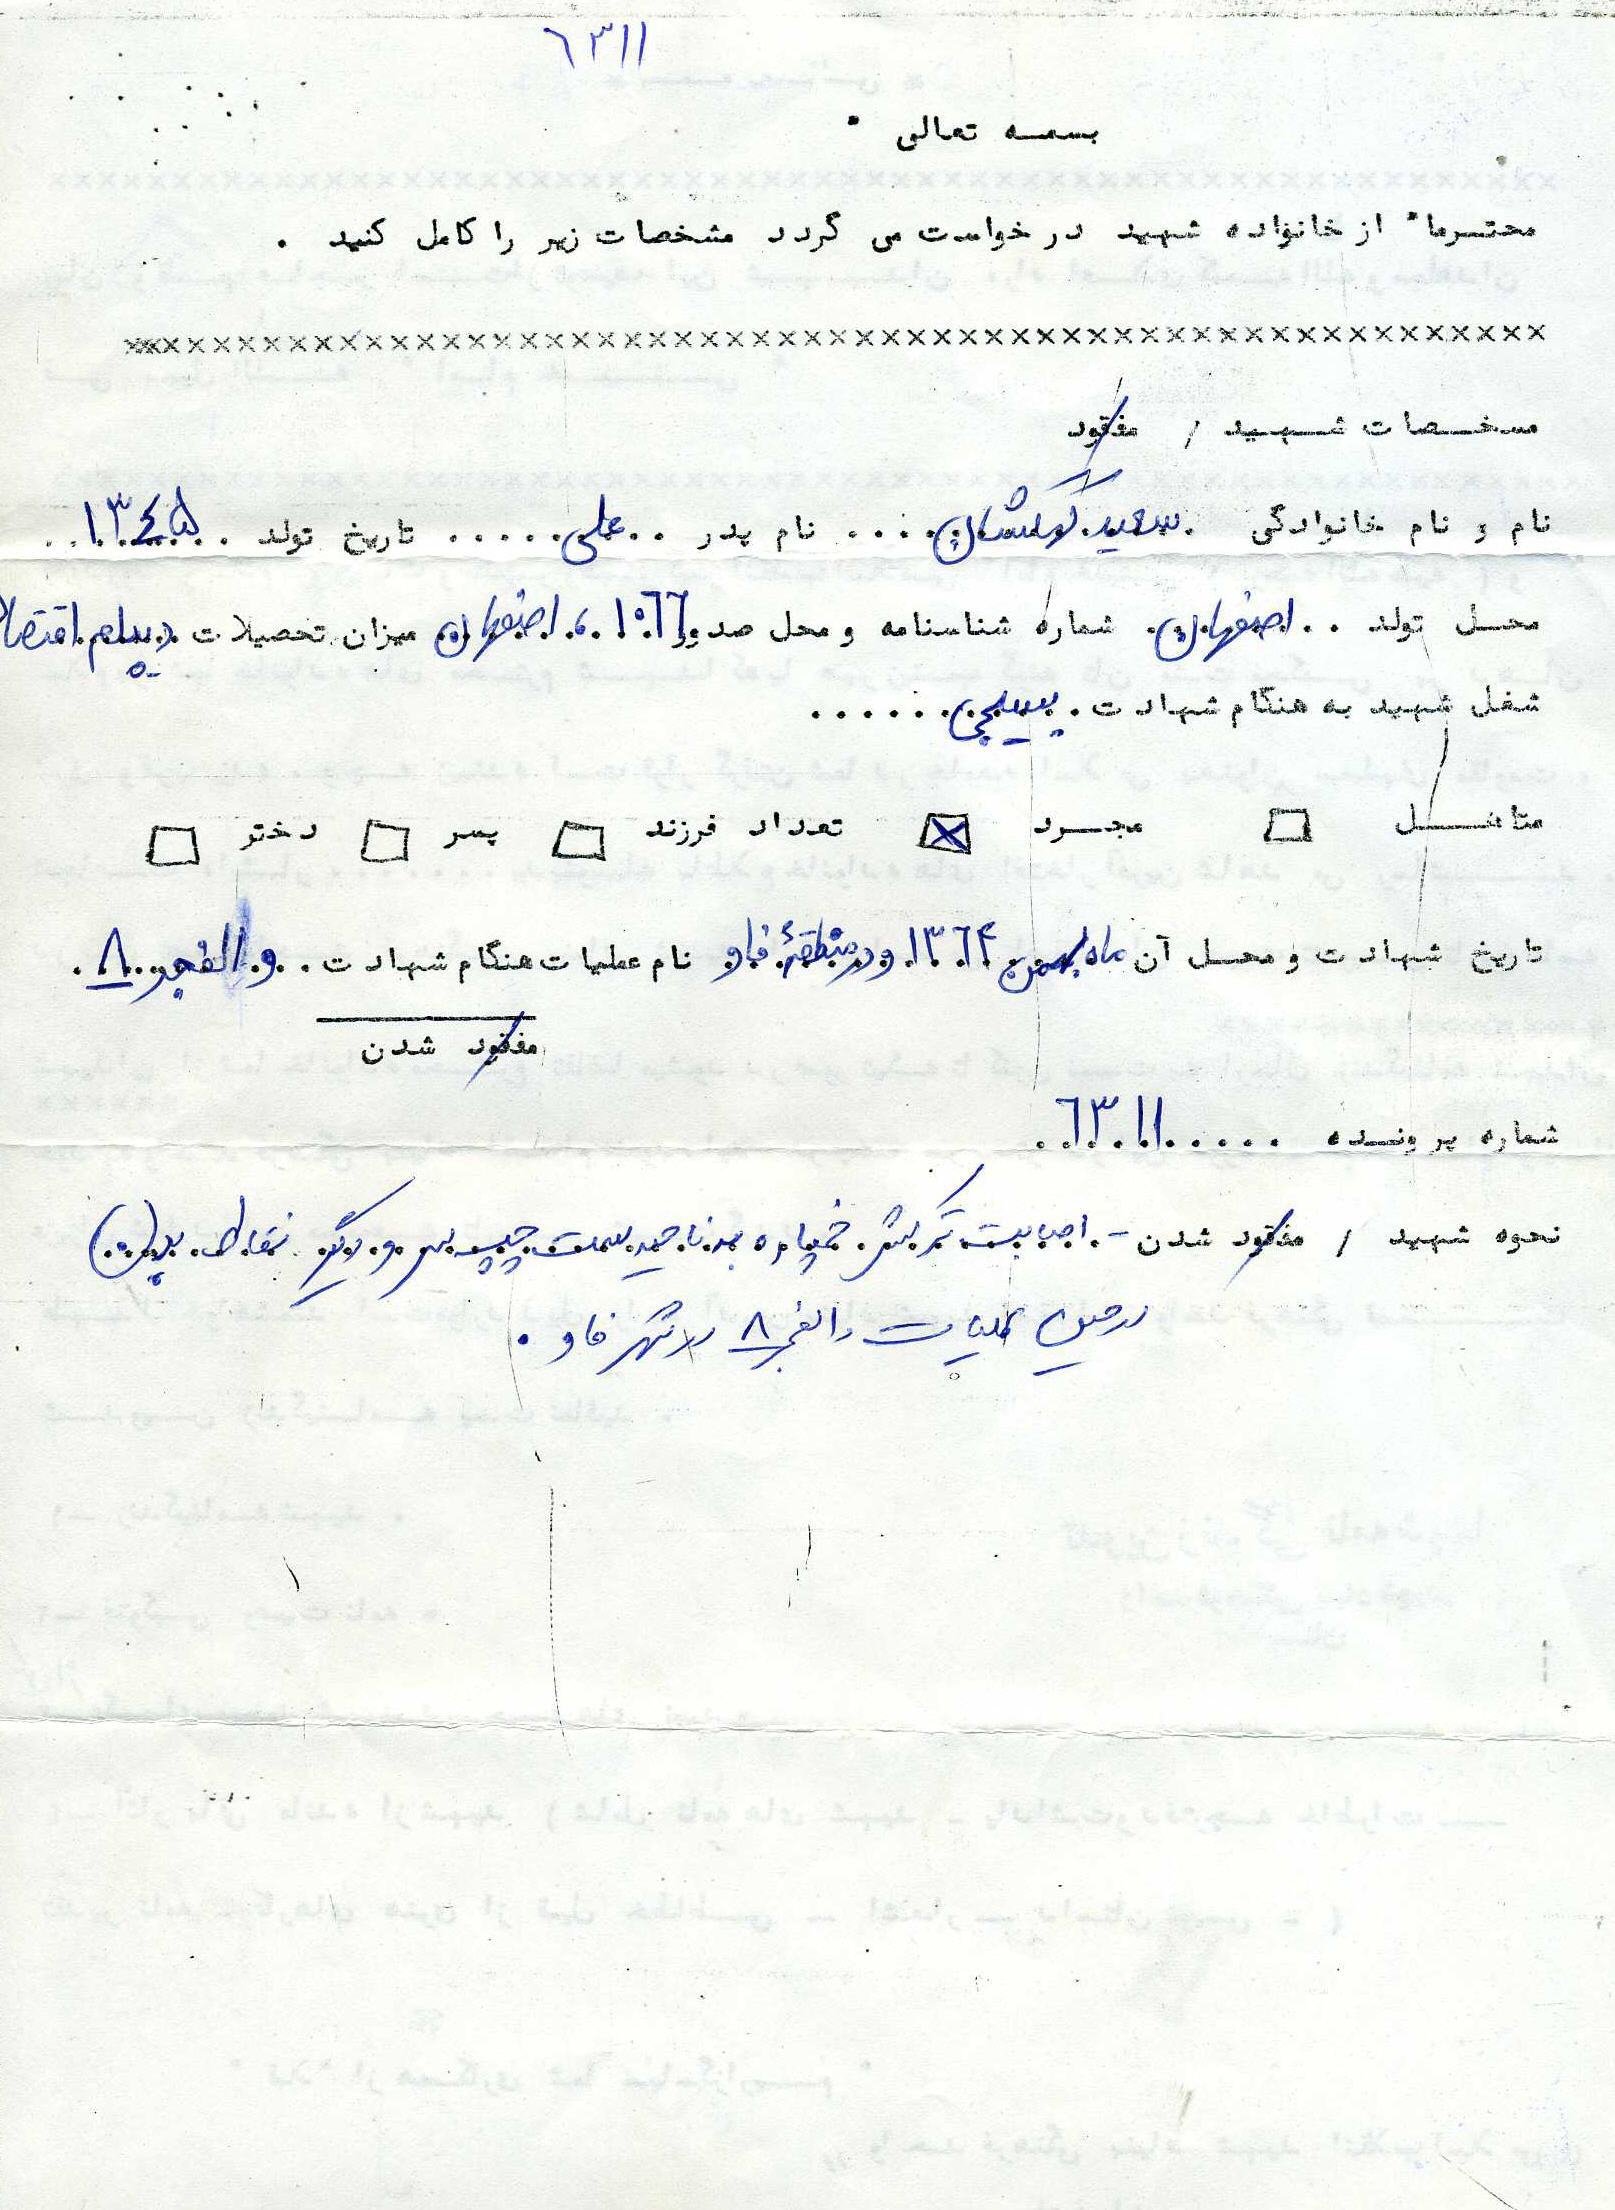 ٦٣١١
بسمه تعالی
محترما" از خانواده شهید در خواست می گردد مشخصات زیر را کامل کنید .
××××××××××××××××××××××××××××××××××××××××××××××××××××××××
مشخصات شهید / مفقود
نام و نام خانوادگی سعید ..... نام پدر .. علی ..... تاریخ تولد .. ١٣٤٥
محل تولد .. اصفهان . شماره شناسنامه و محل صدور ١٠٦٦ ، اصفهان میزان تحصیلات دیپلم اقتصاد
شغل شهید به هنگام شهادت . بسیجی ......
متاهل □ مجرد ☒ تعداد فرزند □ پسر □ دختر □
تاریخ شهادت و محل آن ماه بهمن ١٣٦٤ و در منطقهٔ فاو نام عملیات هنگام شهادت .. والفجر ٨
مفقود شدن
شماره پرونده ..... ٦٣١١
نحوه شهید / مفقود شدن - اصابت ترکش خمپاره به ناحیه سمت چپ سر و دیگر نقاط بدن
در حین عملیات والفجر ٨ در شهر فاو .